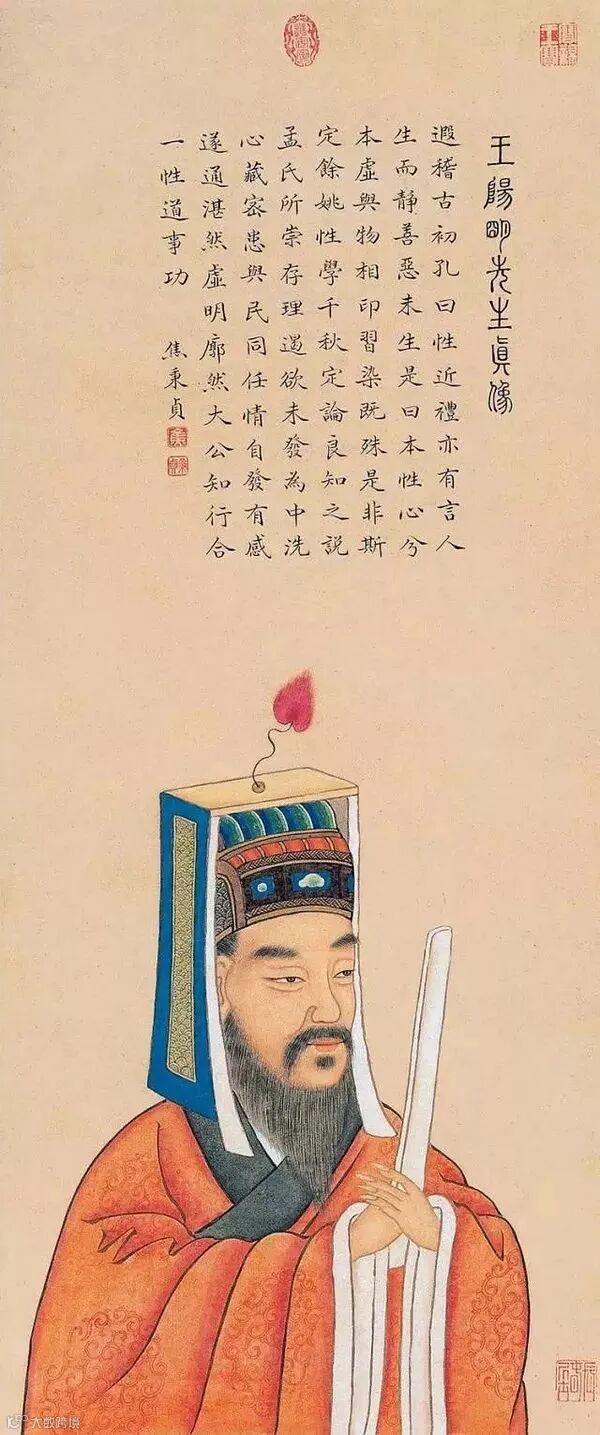 王陽明先生眞像
遐稽古初孔曰性近禮亦有言人
生而靜善惡未生是曰本性心兮
本虛與物相印習染既殊是非斯
定餘姚性學千秋定論良知之説
孟氏所崇存理遏欲未發為中洗
心藏密患與民同任情自發有感
遂通湛然虛明廓然大公知行合
一性道事功 焦秉貞
大数跨境